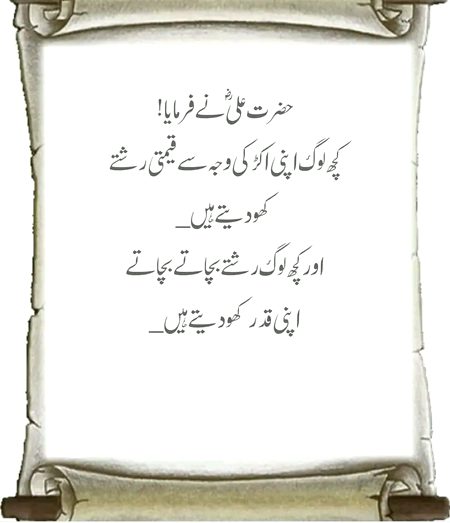 حضرت علیؓ نے فرمایا!
کچھ لوگ اپنی اکڑ کی وجہ سے قیمتی رشتے
کھو دیتے ہیں_
اور کچھ لوگ رشتے بچاتے بچاتے
اپنی قدر کھو دیتے ہیں_